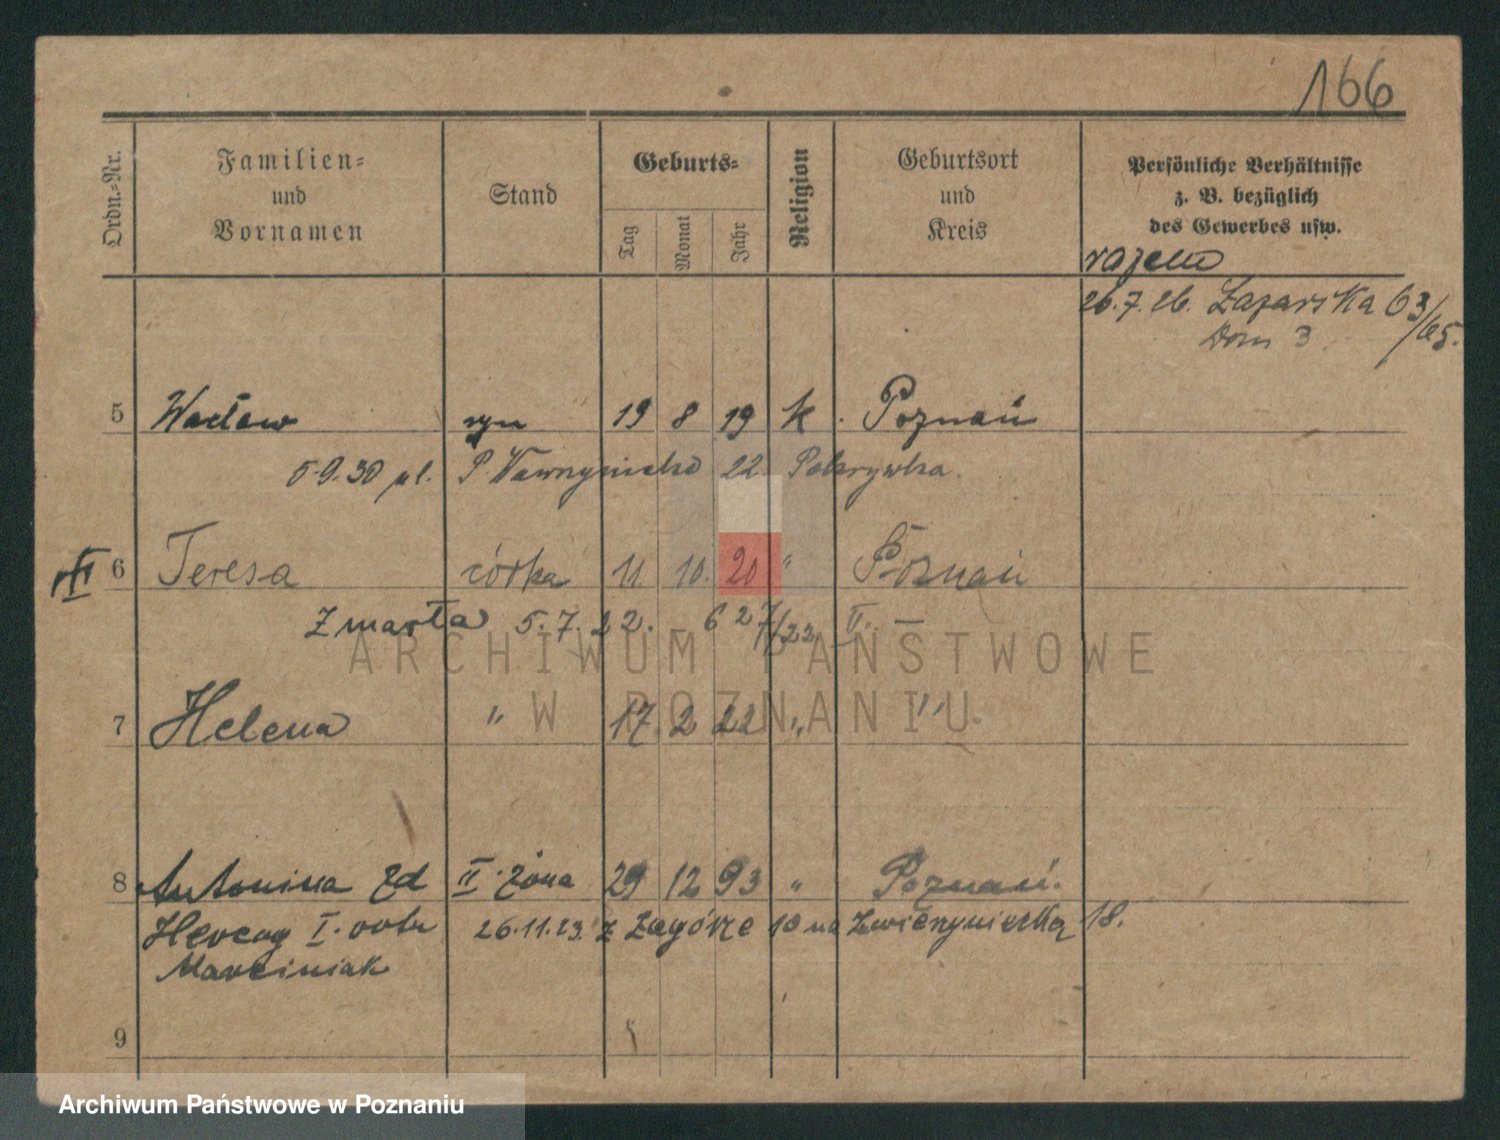 166
Ordn.-Nr. Familien- und Vornamen Stand Geburts- Tag Monat Jahr Religion Geburtsort und Kreis Persönliche Verhältnisse z. B. bezüglich des Gewerbes usw.
razem
26.7.26. Łazarska 63/65.
Dom 3
5 Wacław syn 19 8 19 k. Poznań
5.9.30 pl. 22
6 Teresa córka 11. 10. 20 " Poznań
Zmarła 5.7.22. 627/22 II. –
ARCHIWUM PAŃSTWOWE
W POZNANIU
7 Helena " 17. 2 22 " "
8 Antonina zd II. żona 29 12 93 " Poznań.
Hercog I. voto 26.11.23. z Zagórze 10 na Zwierzyniecką 18.
Marciniak
9
Archiwum Państwowe w Poznaniu